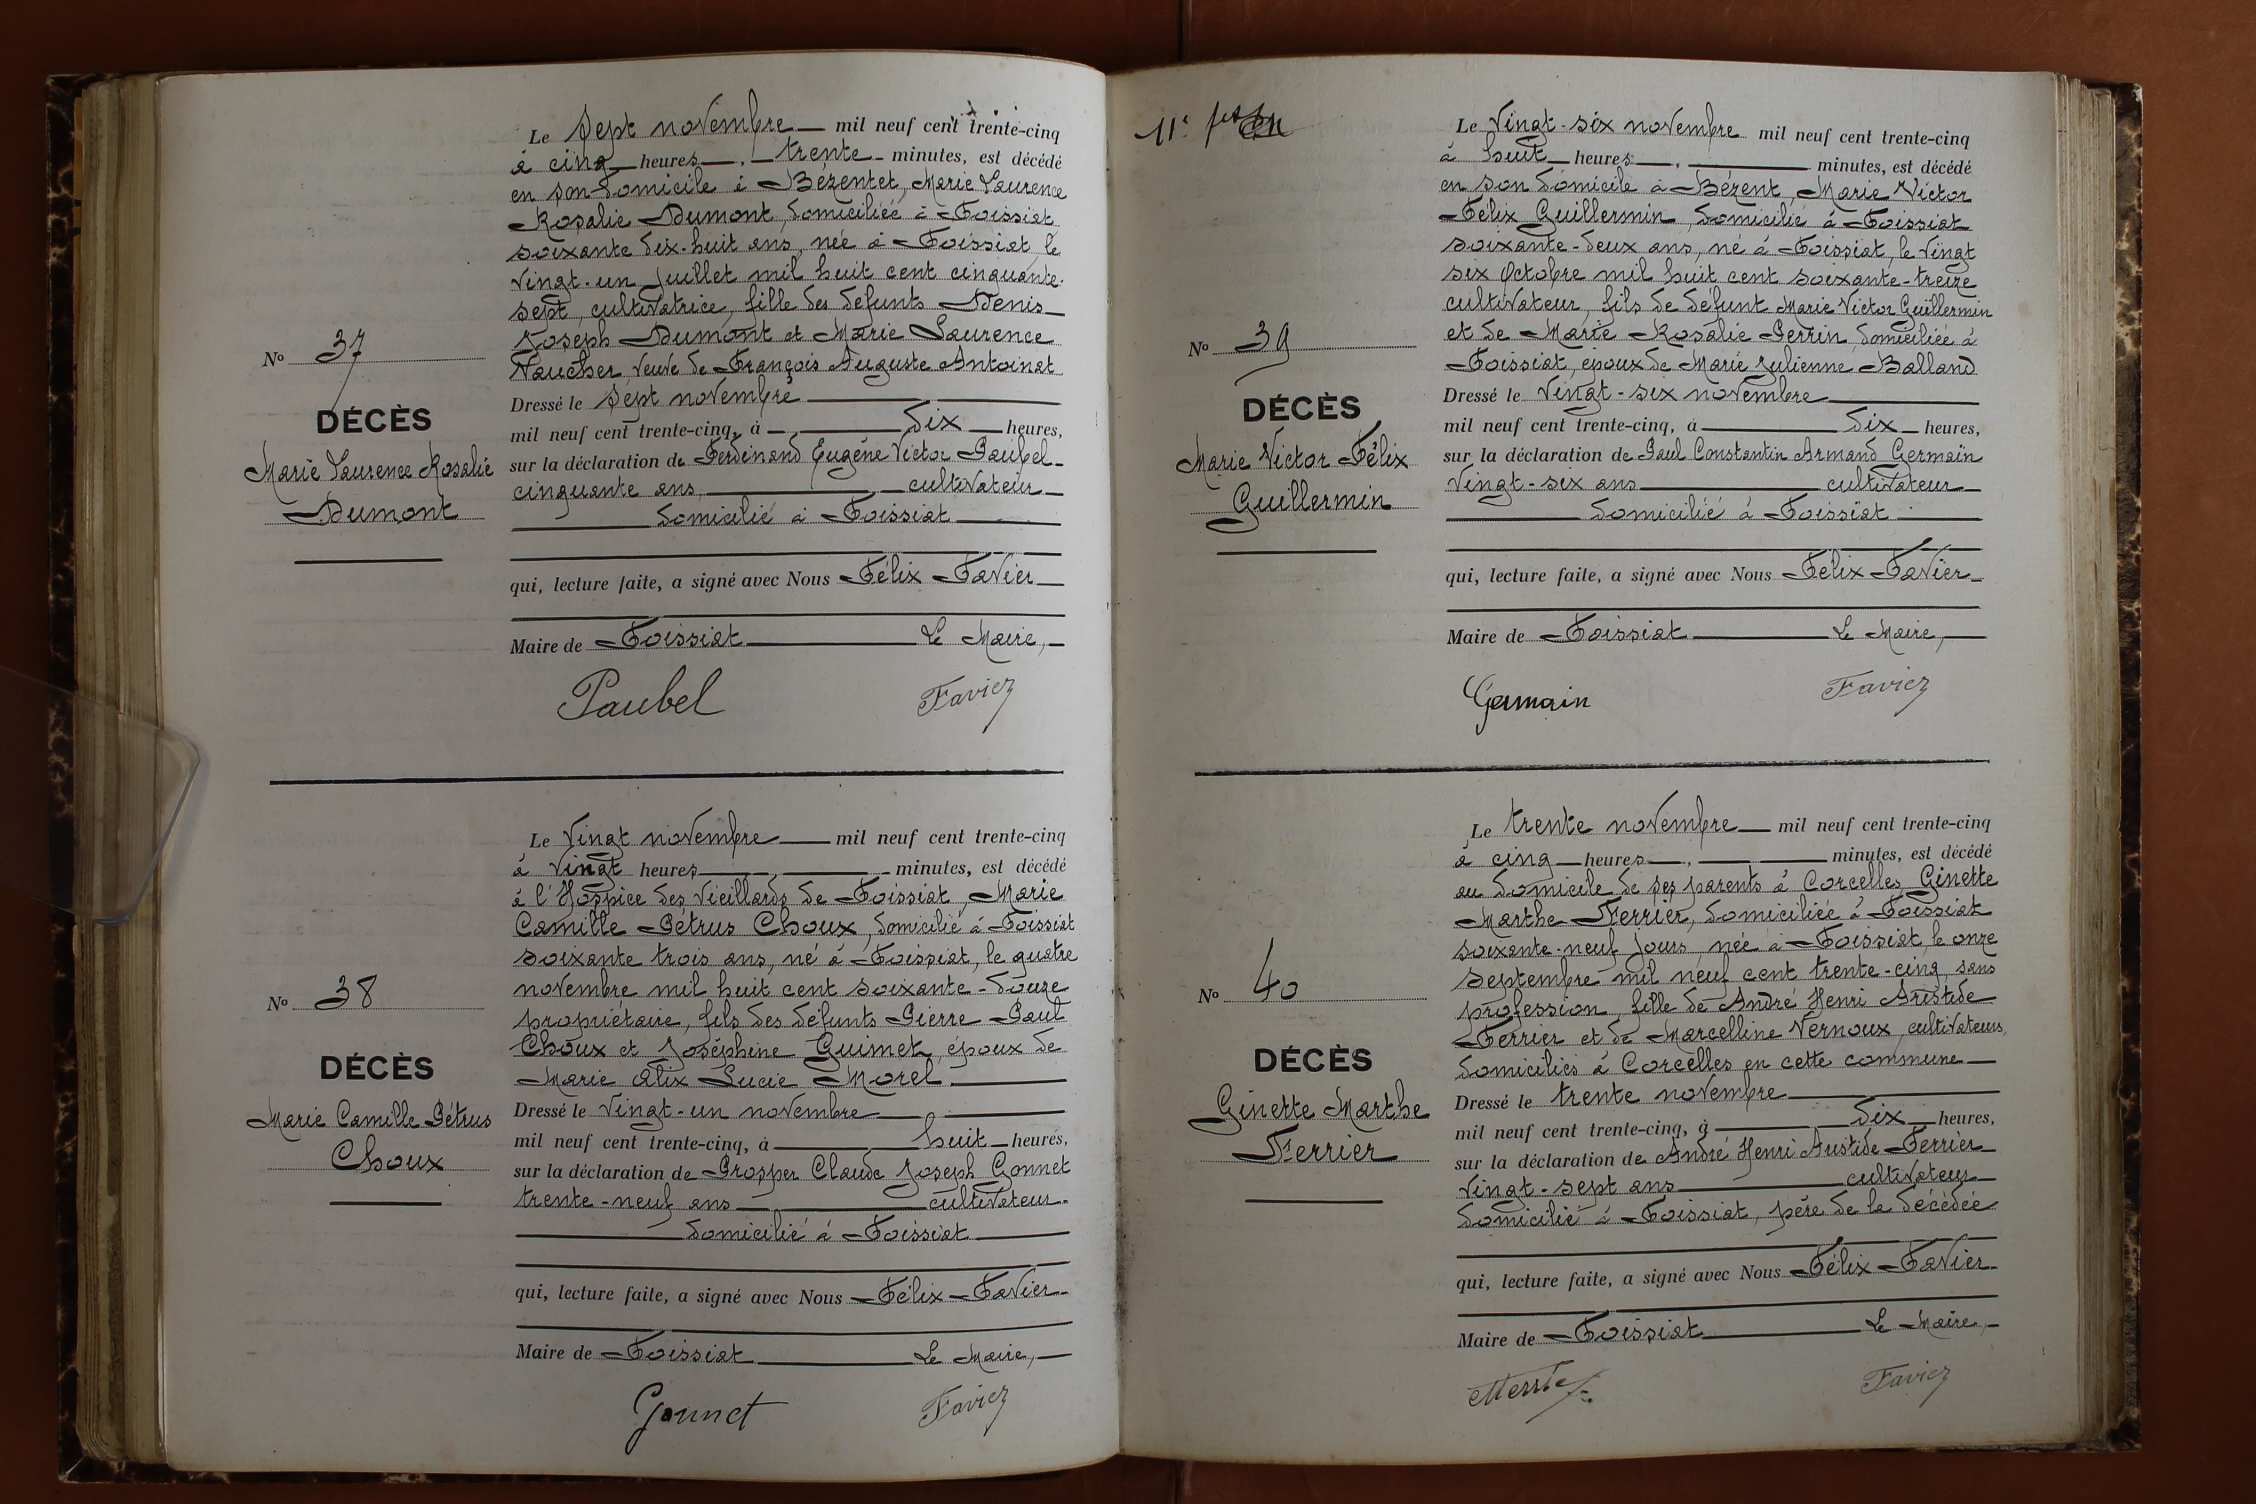 Le sept novembre mil neuf cent trente-cinq
à cinq heures, trente minutes, est décédé
en son domicile à Bézentet, Marie Laurence
Rosalie Dumont, domiciliée à Foissiat
soixante dix-huit ans, née à Foissiat, le
vingt-un juillet mil huit cent cinquante-
sept, cultivatrice, fille des défunts Denis
Joseph Dumont et Marie Laurence
Vaucher, veuve de François Auguste Antoinat
Dressé le sept novembre
mil neuf cent trente-cinq, à dix heures,
sur la déclaration de Ferdinand Eugène Victor Paubel
cinquante ans, cultivateur
domicilié à Foissiat
qui, lecture faite, a signé avec Nous Félix Favier
Maire de Foissiat Le Maire,
Paubel Favier
No 37
DÉCÈS
Marie Laurence Rosalie
Dumont
Le vingt novembre mil neuf cent trente-cinq
à vingt heures, minutes, est décédé
à l'Hospice des Vieillards de Foissiat, Marie
Camille Pétrus Choux, domicilié à Foissiat
soixante trois ans, né à Foissiat, le quatre
novembre mil huit cent soixante-douze
propriétaire, fils des défunts Pierre Paul
Choux et Joséphine Guimet, époux de
Marie Alix Lucie Morel
Dressé le vingt-un novembre
mil neuf cent trente-cinq, à huit heures,
sur la déclaration de Prosper Claude Joseph Gonnet
trente-neuf ans cultivateur
domicilié à Foissiat
qui, lecture faite, a signé avec Nous Félix Favier
Maire de Foissiat Le Maire,
Gonnet Favier
No 38
DÉCÈS
Marie Camille Pétrus
Choux
11e
Le vingt-six novembre mil neuf cent trente-cinq
à huit heures, minutes, est décédé
en son domicile à Bézent, Marie Victor
Félix Guillermin, domicilié à Foissiat
soixante-deux ans, né à Foissiat, le vingt
six octobre mil huit cent soixante-treize
cultivateur, fils de défunt Marie Victor Guillermin
et de Marie Rosalie Perrin, domiciliée à
Foissiat, époux de Marie Julienne Balland
Dressé le vingt-six novembre
mil neuf cent trente-cinq, à dix heures,
sur la déclaration de Paul Constantin Armand Germain
vingt-six ans cultivateur
domicilié à Foissiat
qui, lecture faite, a signé avec Nous Félix Favier
Maire de Foissiat Le Maire,
Germain Favier
No 39
DÉCÈS
Marie Victor Félix
Guillermin
Le trente novembre mil neuf cent trente-cinq
à cinq heures, minutes, est décédé
au domicile de ses parents à Corcelles, Ginette
Marthe Ferrier, domiciliée à Foissiat
soixante-neuf jours, née à Foissiat, le onze
septembre mil neuf cent trente-cinq, sans
profession, fille de André Henri Aristide
Ferrier et de Marcelline Vernoux, cultivateurs,
domiciliés à Corcelles en cette commune
Dressé le trente novembre
mil neuf cent trente-cinq, à dix heures,
sur la déclaration de André Henri Aristide Ferrier
vingt-sept ans cultivateur
domicilié à Foissiat, père de la décédée
qui, lecture faite, a signé avec Nous Félix Favier
Maire de Foissiat Le Maire,
Favier
No 40
DÉCÈS
Ginette Marthe
Ferrier